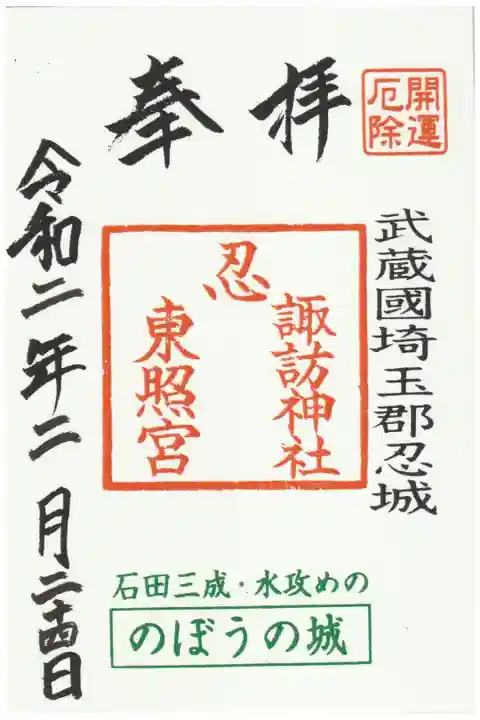 開運
厄除
奉拝
武蔵國埼玉郡忍城
忍
諏訪神社
東照宮
令和二年二月二十四日
石田三成・水攻めの
のぼうの城